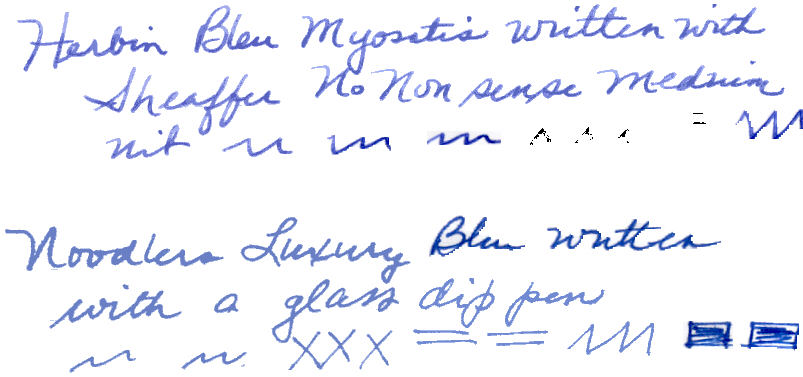 Herbin Bleu Myosotis written with
Sheaffer No Nonsense Medium
nib
Noodlers Luxury Blue written
with a glass dip pen
XXX